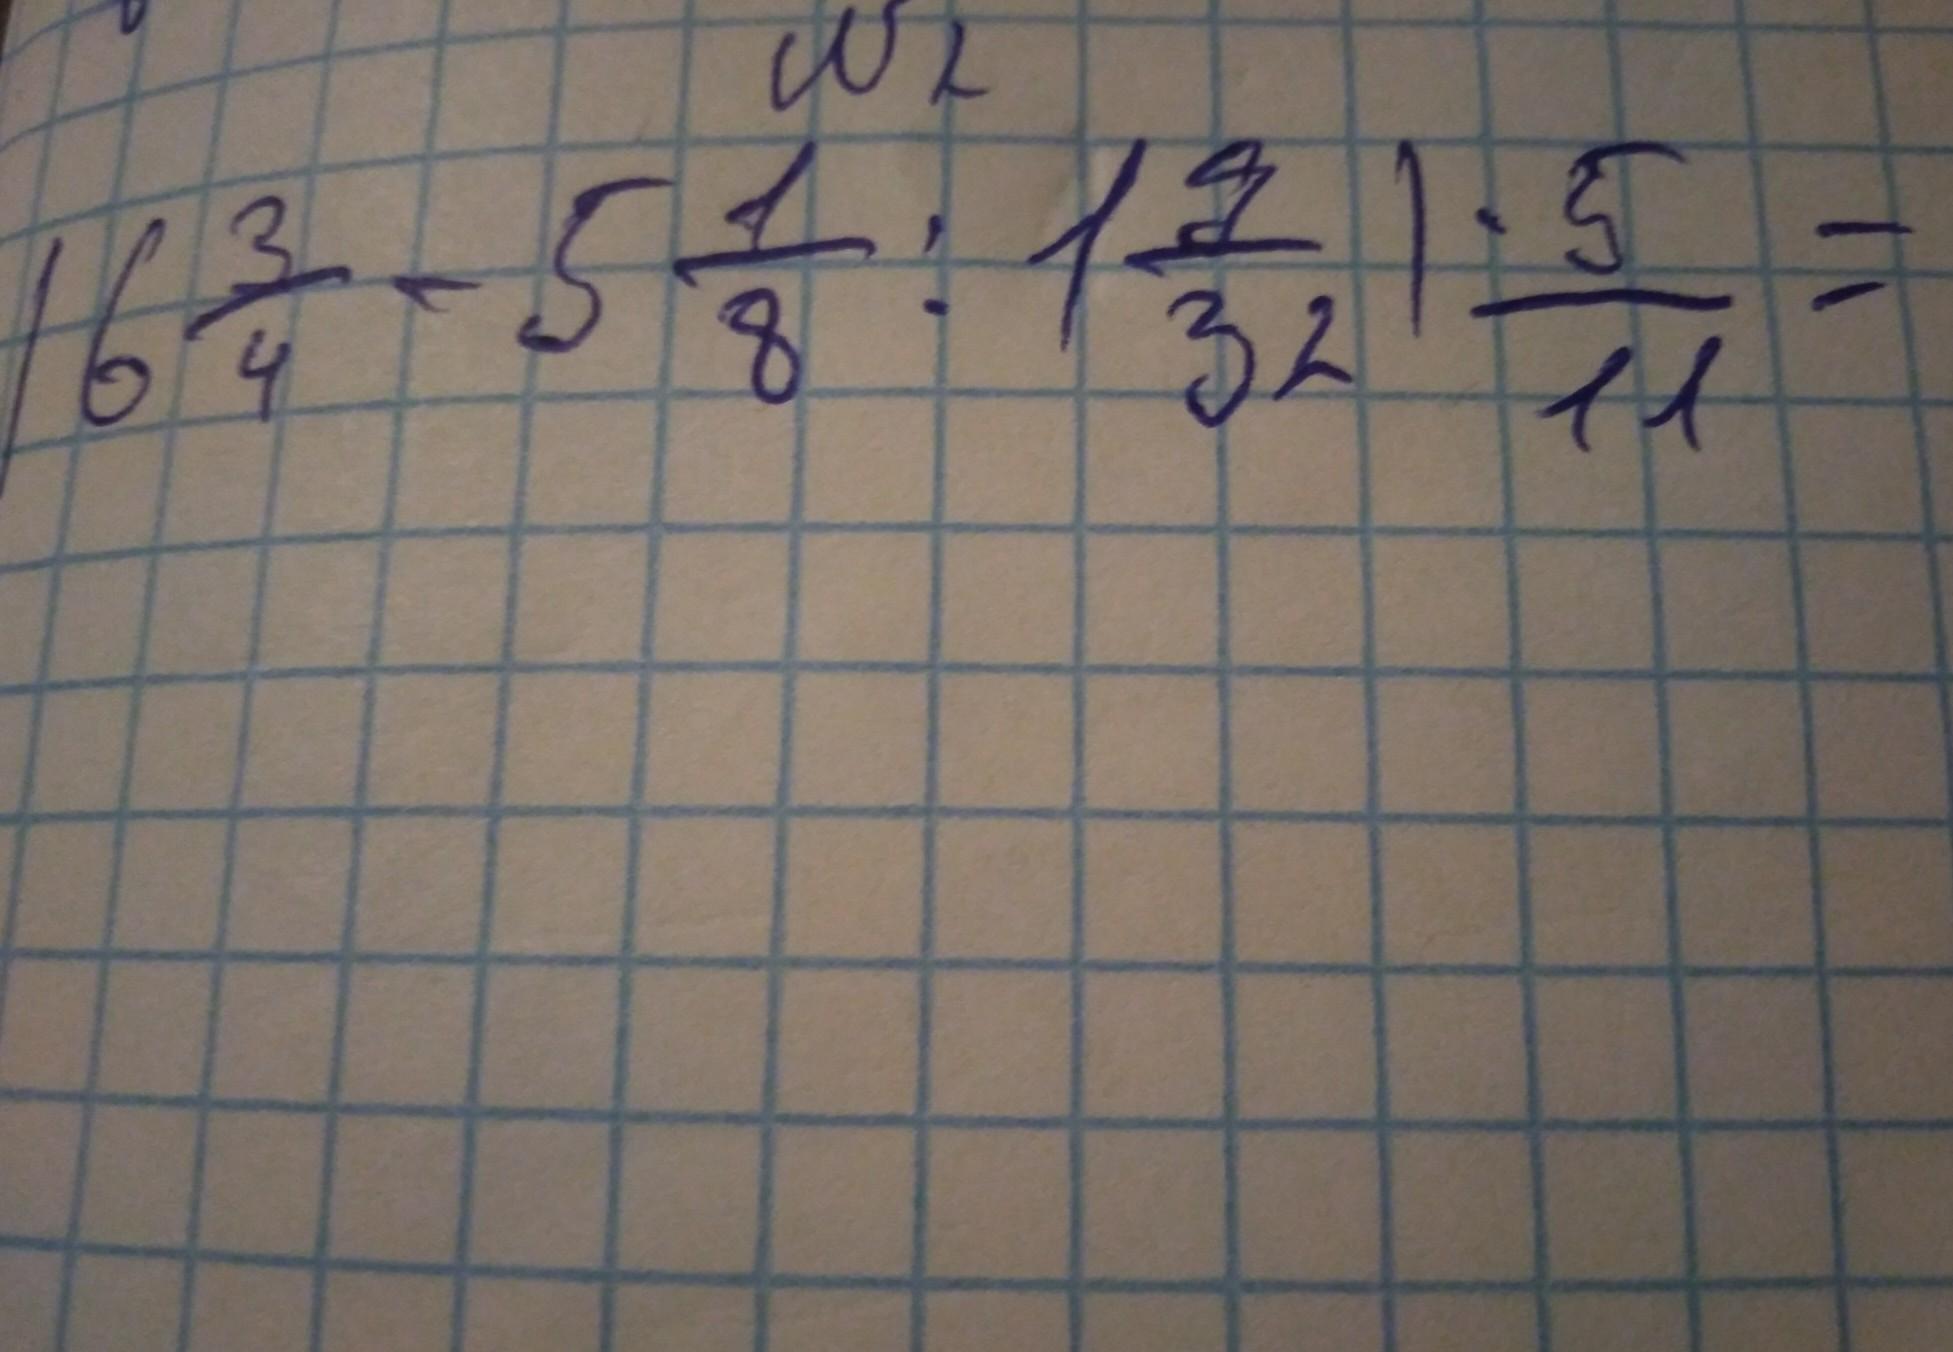 №2
|6 3/4 - 5 1/8 : 1 9/32| · 5/11 =